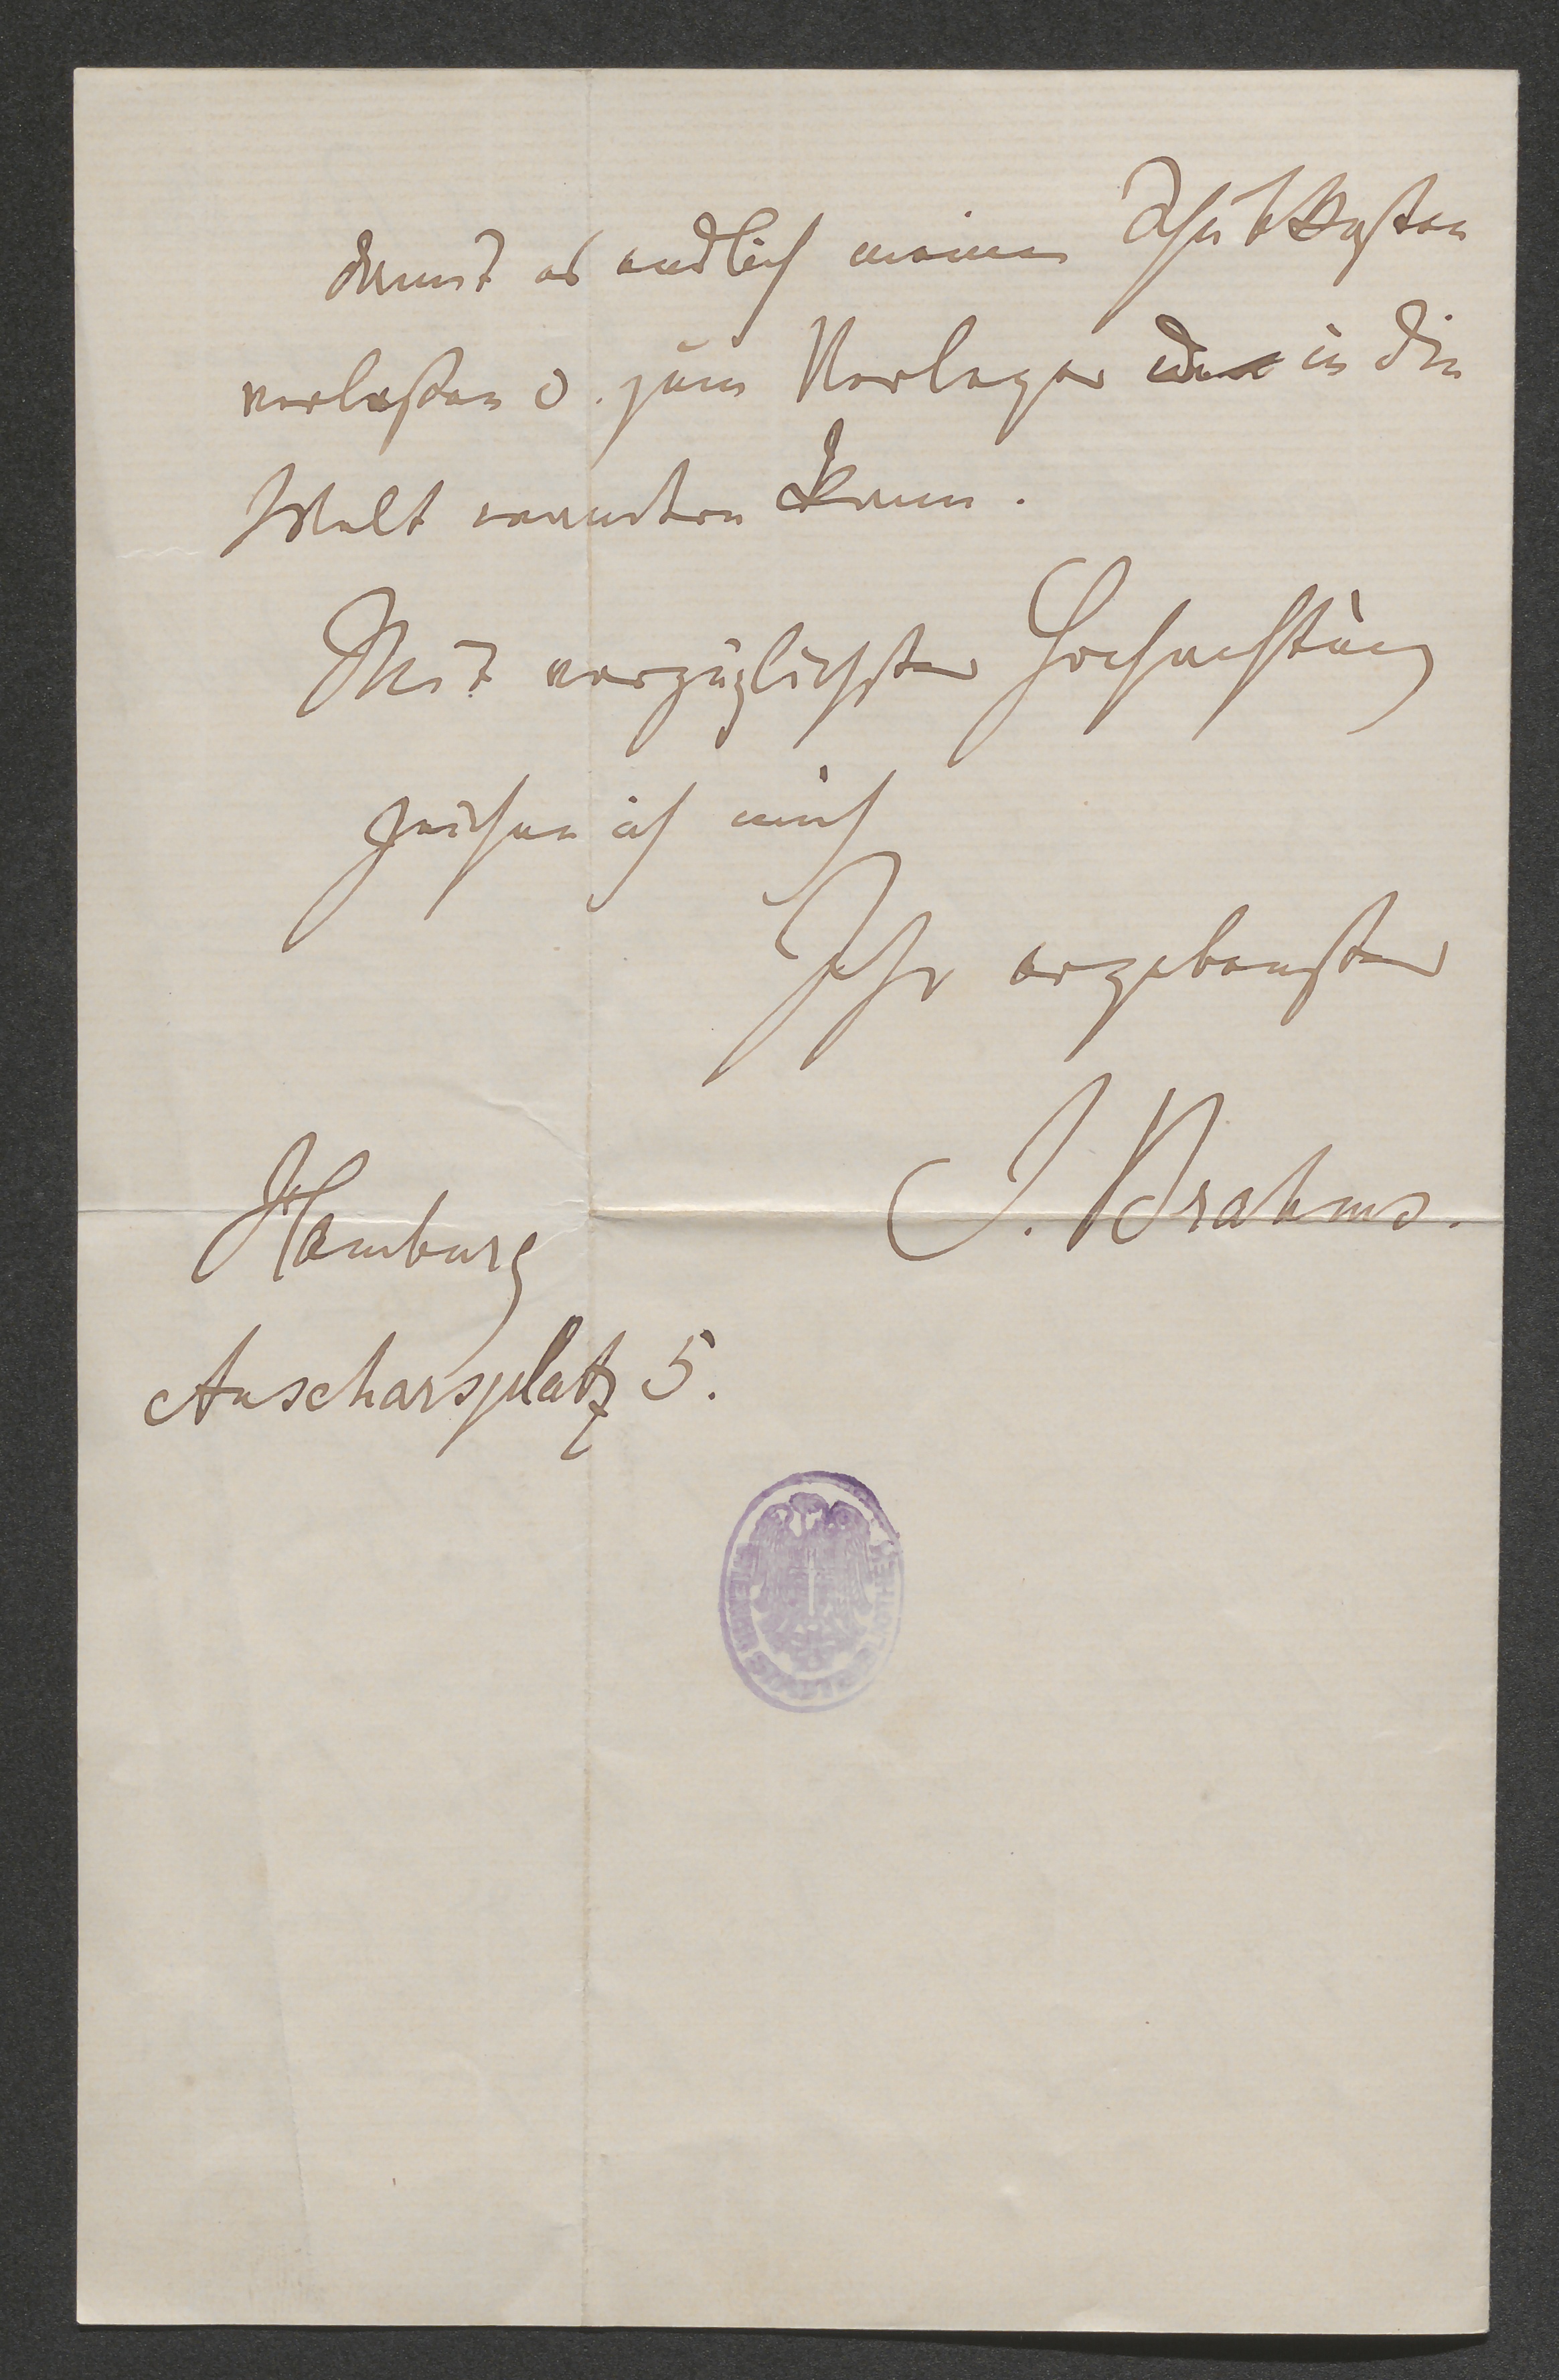 damit es endlich meinen Schubkasten
verlaßen u. zum Verleger in die
Welt wandern kann.
Mit vorzüglichster Hochachtung
zeichne ich mich
Ihr ergebenster
J. Brahms.
Hamburg
Anscharsplatz 5.